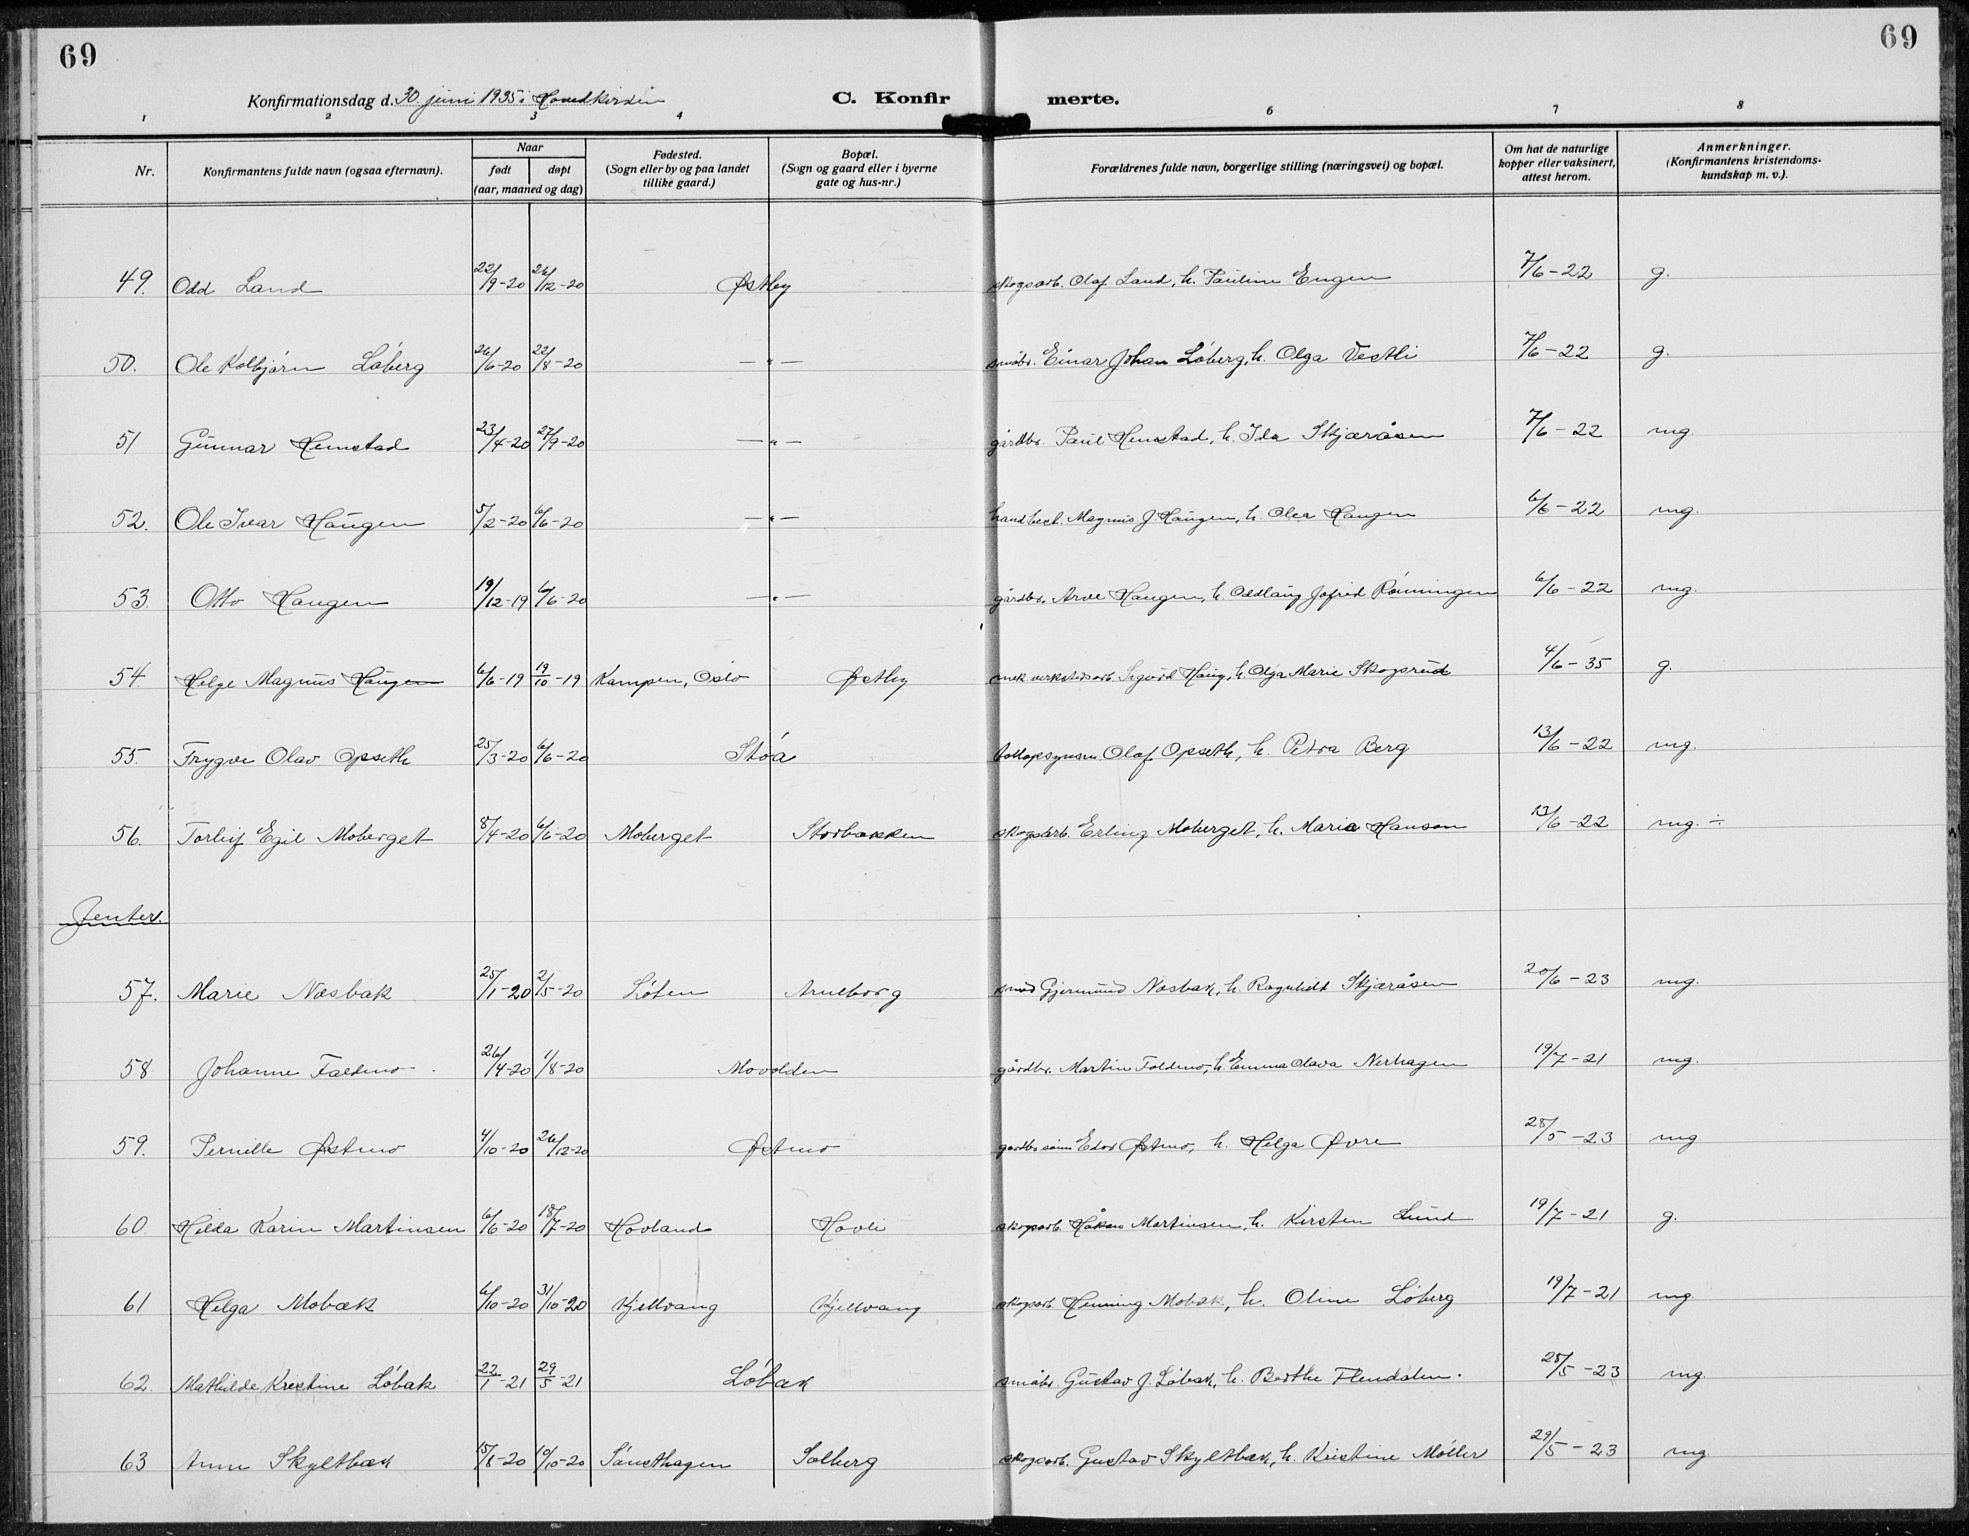 69
69
Konfirmationsdag d. 30 juni 1935 i Hovedkirken
C. Konfirmerte.
1 2 3 4 6 7 8
Nr.
Konfirmantens fulde navn (ogsaa efternavn).
Naar
født døpt
(aar, maaned og dag)
Fødested.
(Sogn eller by og paa landet
tillike gaard.)
Bopæl.
(Sogn og gaard eller i byerne
gate og hus-nr.)
Forældrenes fulde navn, borgerlige stilling (næringsvei) og bopæl.
Om hat de naturlige
kopper eller vaksinert,
attest herom.
Anmerkninger.
(Konfirmantens kristendoms-
kundskap m. v.).
49. Odd Land 22/9-20 26/12-20 Østby skogsarb. Olaf Land, h. Pauline Engen 7/6-22 g.
50. Ole Kolbjørn Løberg 26/6-20 22/8-20 —"— småbr. Einar Johan Løberg, h. Olga Vestli 7/6-22 g.
51 Gunnar Hemstad 23/4-20 27/9-20 —"— gårdbr. Paul Hemstad, h. Ida Skjæråsen 7/6-22 mg.
52. Ole Ivar Haugen 5/2-20 6/6-20 —"— Magnus J Haugen, h. Olea Haugen 6/6-22 mg.
53 Otto Haugen 19/12-19 6/6-20 —"— gårdbr. Arve Haugen, h. Oddlaug Jofrid Rønningen 6/6-22 mg.
54 Helge Magnus Haugen 6/6-19 19/10-19 Kampen, Oslo Østby mek verkstedsarb. Sigurd Haug, h. Olga Marie Skogsrud 4/6-35 g.
55 Trygve Olav Opseth 25/3-20 6/6-20 Støa tollopsynsm. Olaf Opseth, h. Petra Berg 13/6-22 mg.
56. Torleif Egil Moberget 8/4-20 6/6-20 Moberget Storbakken skogsarb. Erling Moberget, h. Marie Hanson 13/6-22 mg. ÷
Jenter.
57. Marie Næsbak 25/1-20 2/5-20 Løten Arneborg smed Gjermund Næsbak, h. Ragnhild Skjæråsen 20/6-23 mg.
58 Johanne Foldmo 26/4-20 1/8-20 Movolden gårdbr. Martin Foldmo, h. Emma Olava Nerhagen 19/7-21 mg.
59. Pernille Østmo 4/10-20 26/12-20 Østmo gardbr.sønn Edor Østmo, h. Helga Øvre 28/5-23 mg
60. Hilda Karin Martinsen 6/6-20 18/7-20 Hovland Hovli skogsarb. Håkon Martinsen, h. Kirsten Lund 19/7-21 g.
61 Helga Mobæk 6/10-20 31/10-20 Kjellvang Kjellvang skogsarb. Henning Mobæk, h. Oline Løberg 19/7-21 mg.
62. Mathilde Kristine Løbak 22/1-21 29/5-21 Løbæk småbr. Gustav J. Løbak, h. Berthe Flendalen. 28/5-23 mg.
63 Anne Skyltbæk 15/8-20 10/10-20 Solberg skogsarb. Gustav Skyltbæk, h. Kristine Møller 29/5-23 mg